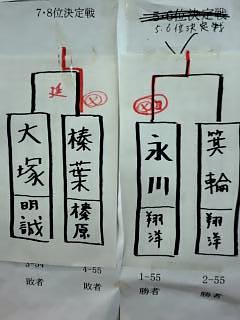 7・8位決定戦
延
メ
大塚
明誠
榛葉
榛原
3-54
敗者
4-55
敗者
5・6位決定戦
5.6位決定戦
メ
永川
翔洋
箕輪
翔洋
1-55
勝者
2-55
勝者